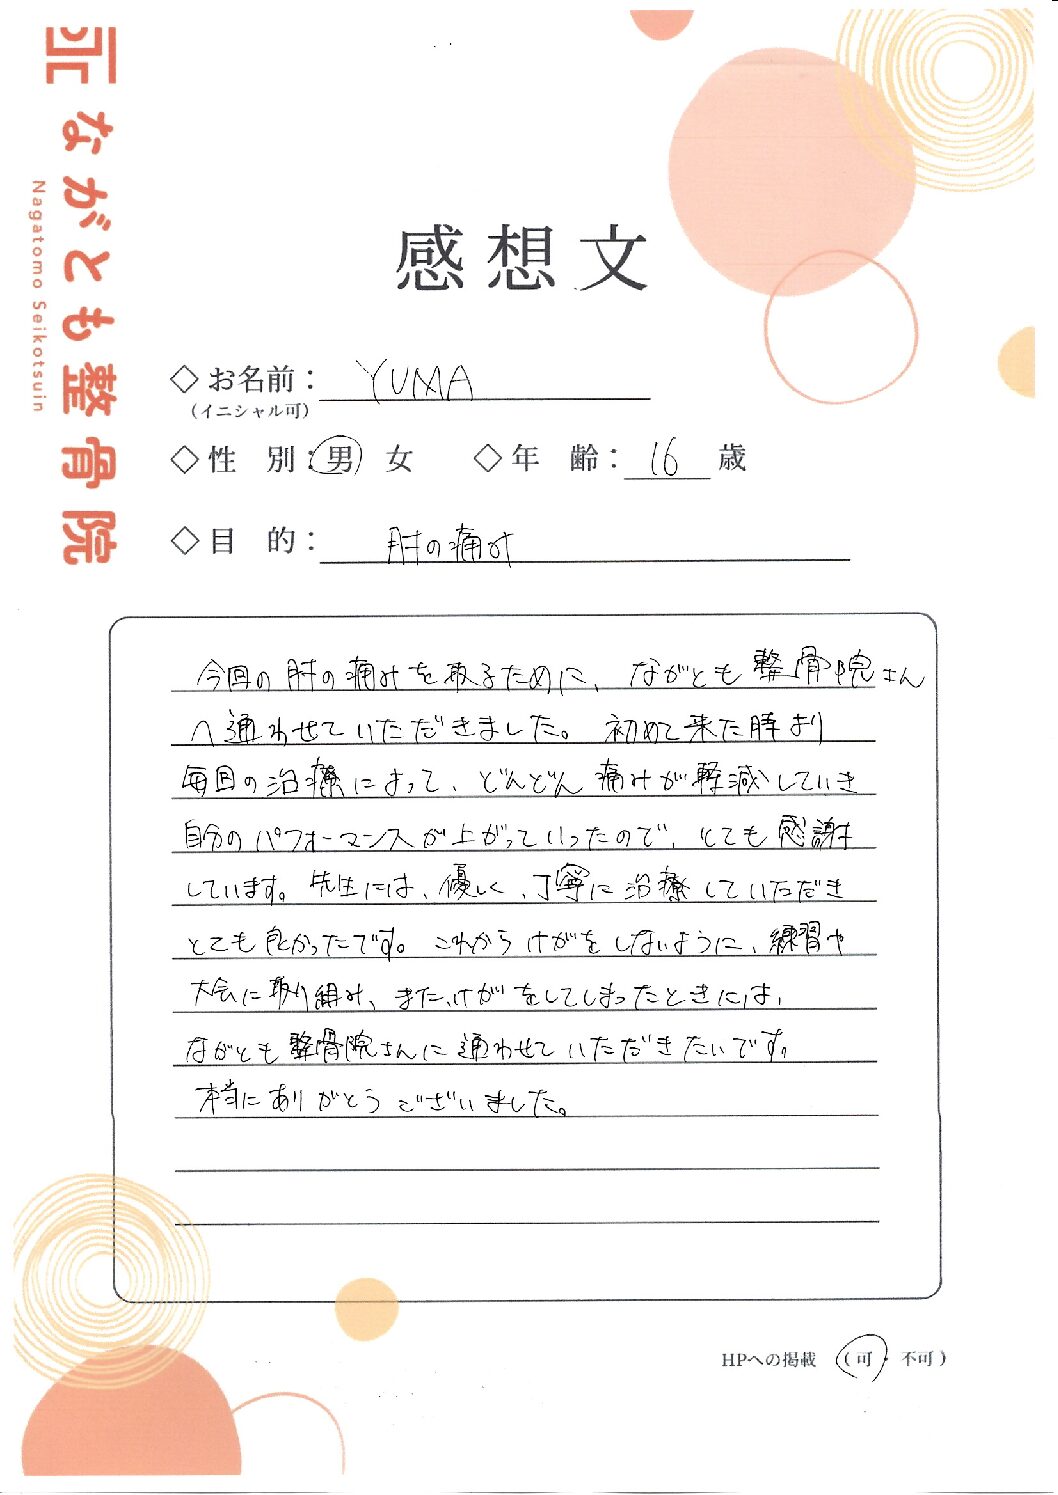 ながとも整骨院
Nagatomo Seikotsuin
感想文
◇お名前： YUMA
（イニシャル可）
◇性 別：男 女 ◇年 齢： 16 歳
◇目 的： 肘の痛み
今回の肘の痛みを取るために、ながとも整骨院さん
へ通わせていただきました。初めて来た時より
毎回の治療によって、どんどん痛みが軽減していき
自分のパフォーマンスが上がっていったので、とても感謝
しています。先生には、優しく、丁寧に治療していただき
とても良かったです。これからけがをしないように、練習や
大会に取り組み、また、けがをしてしまったときには、
ながとも整骨院さんに通わせていただきたいです。
本当にありがとうございました。
HPへの掲載 （可・不可）